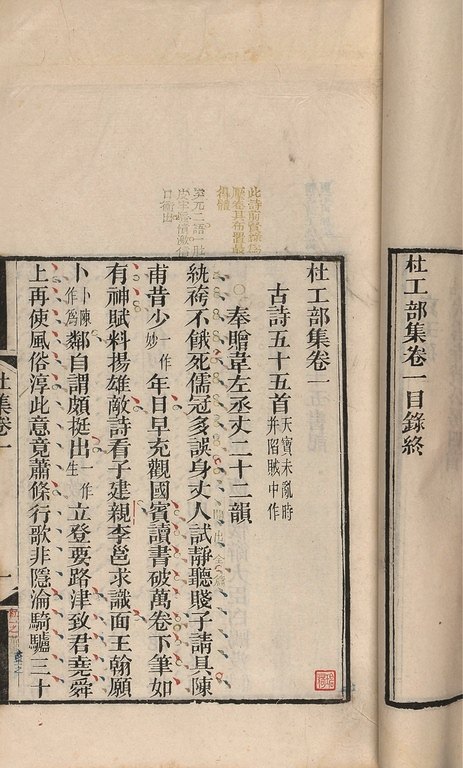 杜工部集卷一目錄終
杜工部集卷一
古詩五十五首天寶未亂時并陷賊中作
奉贈韋左丞丈二十二韻
紈袴不餓死儒冠多誤身丈人試靜聽賤子請具陳
甫昔少一作妙年日早充觀國賓讀書破萬卷下筆如
有神賦料揚雄敵詩看子建親李邕求識面王翰願
卜卜陳作為鄰自謂頗挺出一作生立登要路津致君堯舜
上再使風俗淳此意竟蕭條行歌非隱淪騎驢三十
杜集卷一
一